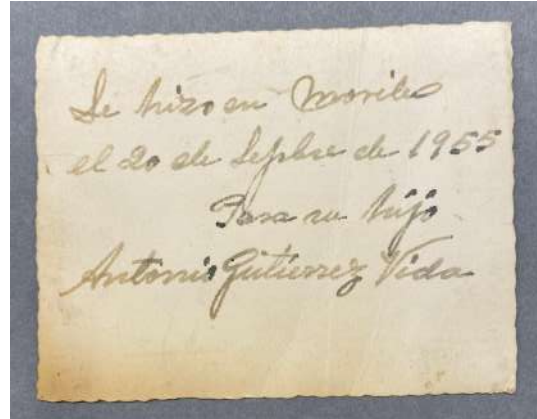 Se hizo en Moriles
el 20 de Sepbre de 1955
Para su hijo
Antonio Gutierrez Vida